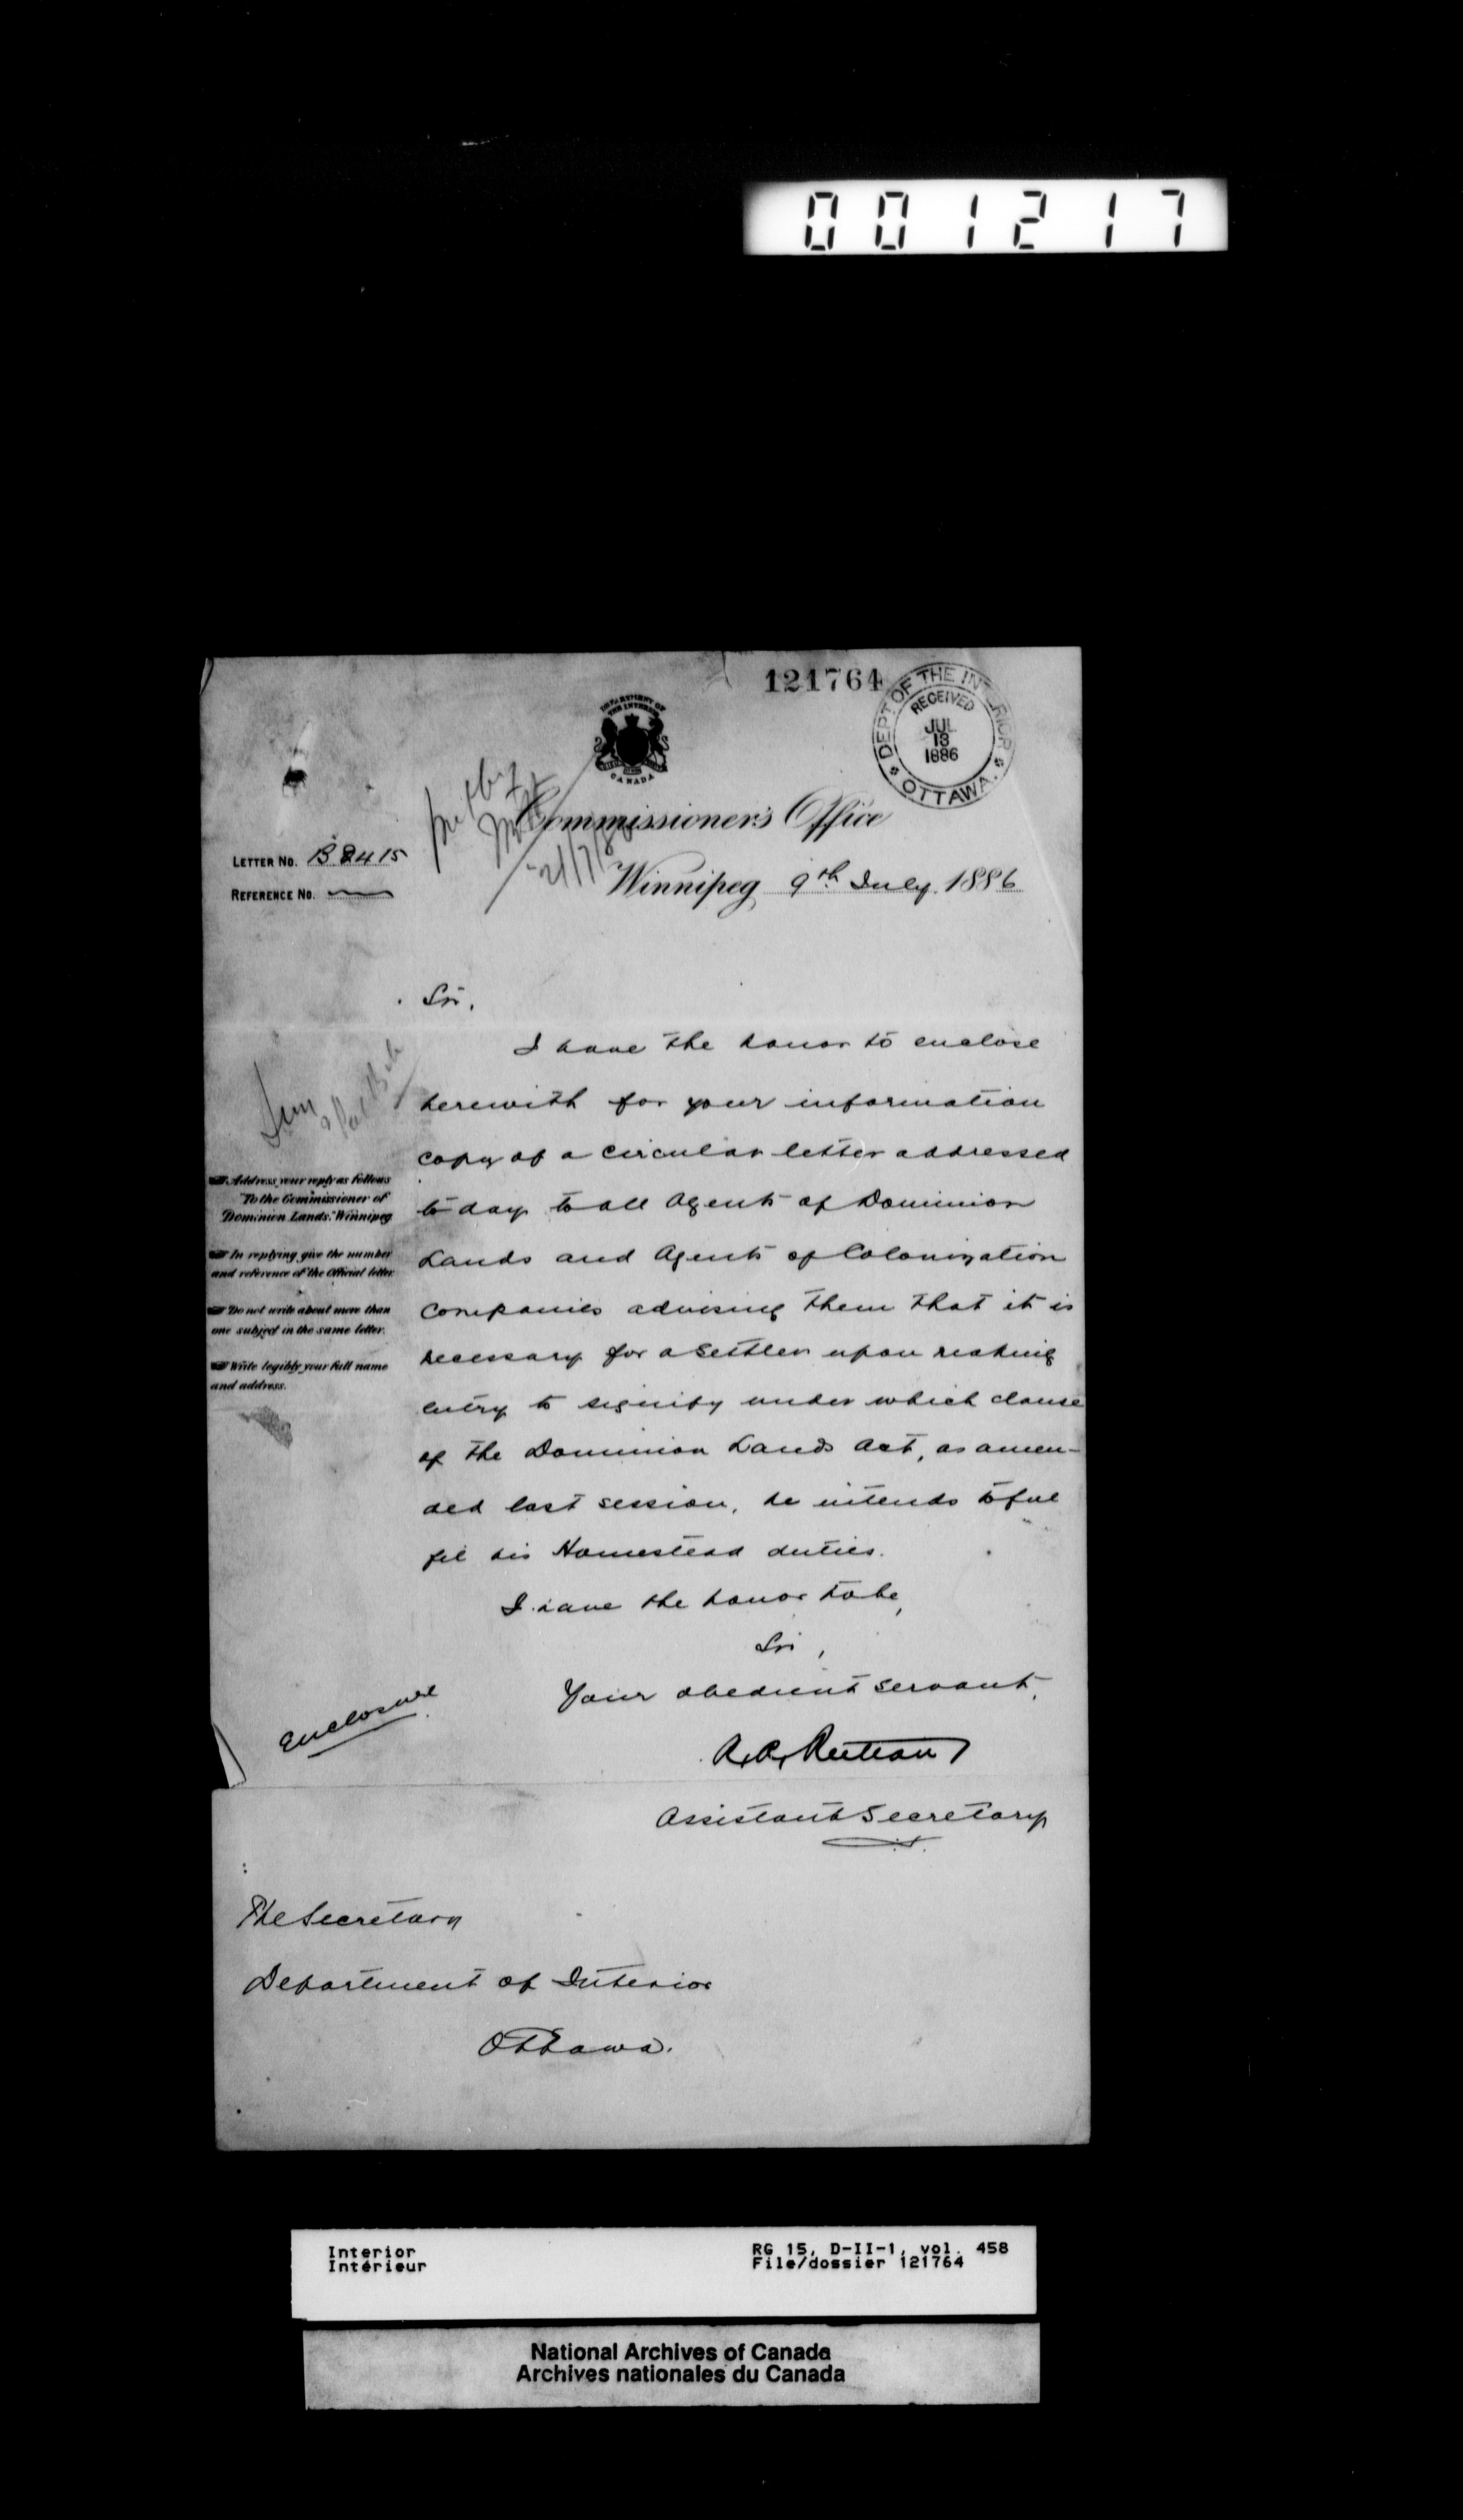 001217
121764
DEPT. OF THE INTERIOR
RECEIVED
JUL
13
1886
OTTAWA.
DEPARTMENT OF
THE INTERIOR
CANADA
Commissioner's Office
LETTER No. B.2415
21/7/86
REFERENCE No.
Winnipeg 9th July. 1886
Sir,
I have the honor to enclose
herewith for your information
copy of a circular letter addressed
to day to all Agents of Dominion
Lands and Agents of Colonization
Companies advising them that it is
necessary for a settler upon making
entry to signify under which clause
of the Dominion Lands Act, as amen-
ded last session, he intends to ful
fil his Homestead duties.
I have the honor to be,
Sir,
Your obedient servant,
Assistant Secretary
Address your reply as follows
"To the Commissioner of
Dominion Lands." Winnipeg
In replying give the number
and reference of the Official letter
Do not write about more than
one subject in the same letter.
Write legibly your full name
and address.
Enclosure
The Secretary
Department of Interior
Ottawa.
Interior
Intérieur
RG 15, D-II-1, vol. 458
File/dossier 121764
National Archives of Canada
Archives nationales du Canada